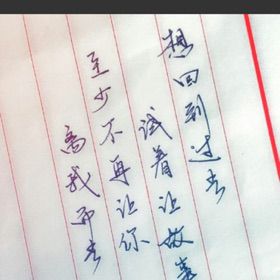 想回到过去
试着让故事
至少不再让你
离我而去